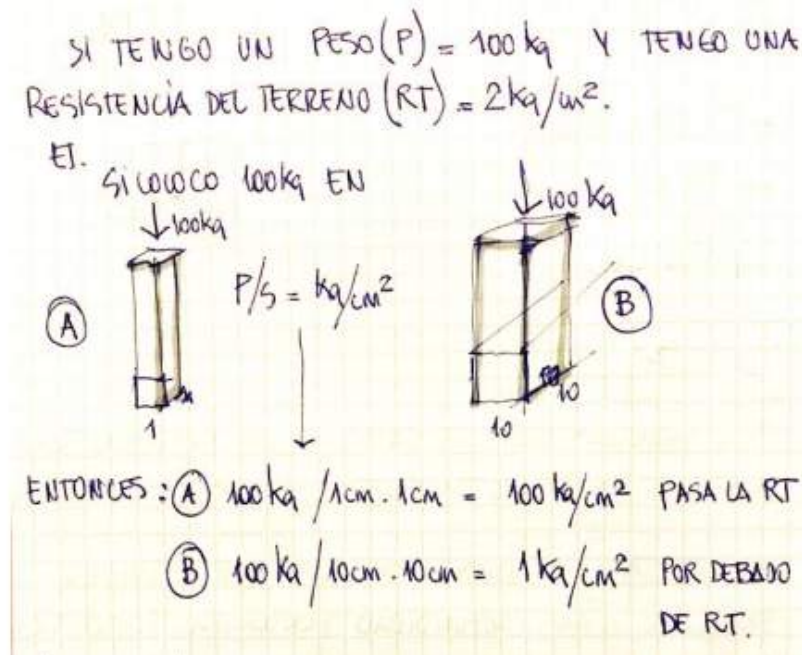 SI TENGO UN PESO(P) = 100 kg Y TENGO UNA
RESISTENCIA DEL TERRENO (RT) = 2kg/cm².
EJ.
SI COLOCO 100kg EN
100kg
100 kg
P/S = kg/cm²
A
B
1
1
10
10
ENTONCES : A 100 kg /1cm . 1cm = 100 kg/cm² PASA LA RT
B 100 kg / 10cm . 10 cm = 1 kg/cm² POR DEBAJO
DE RT.